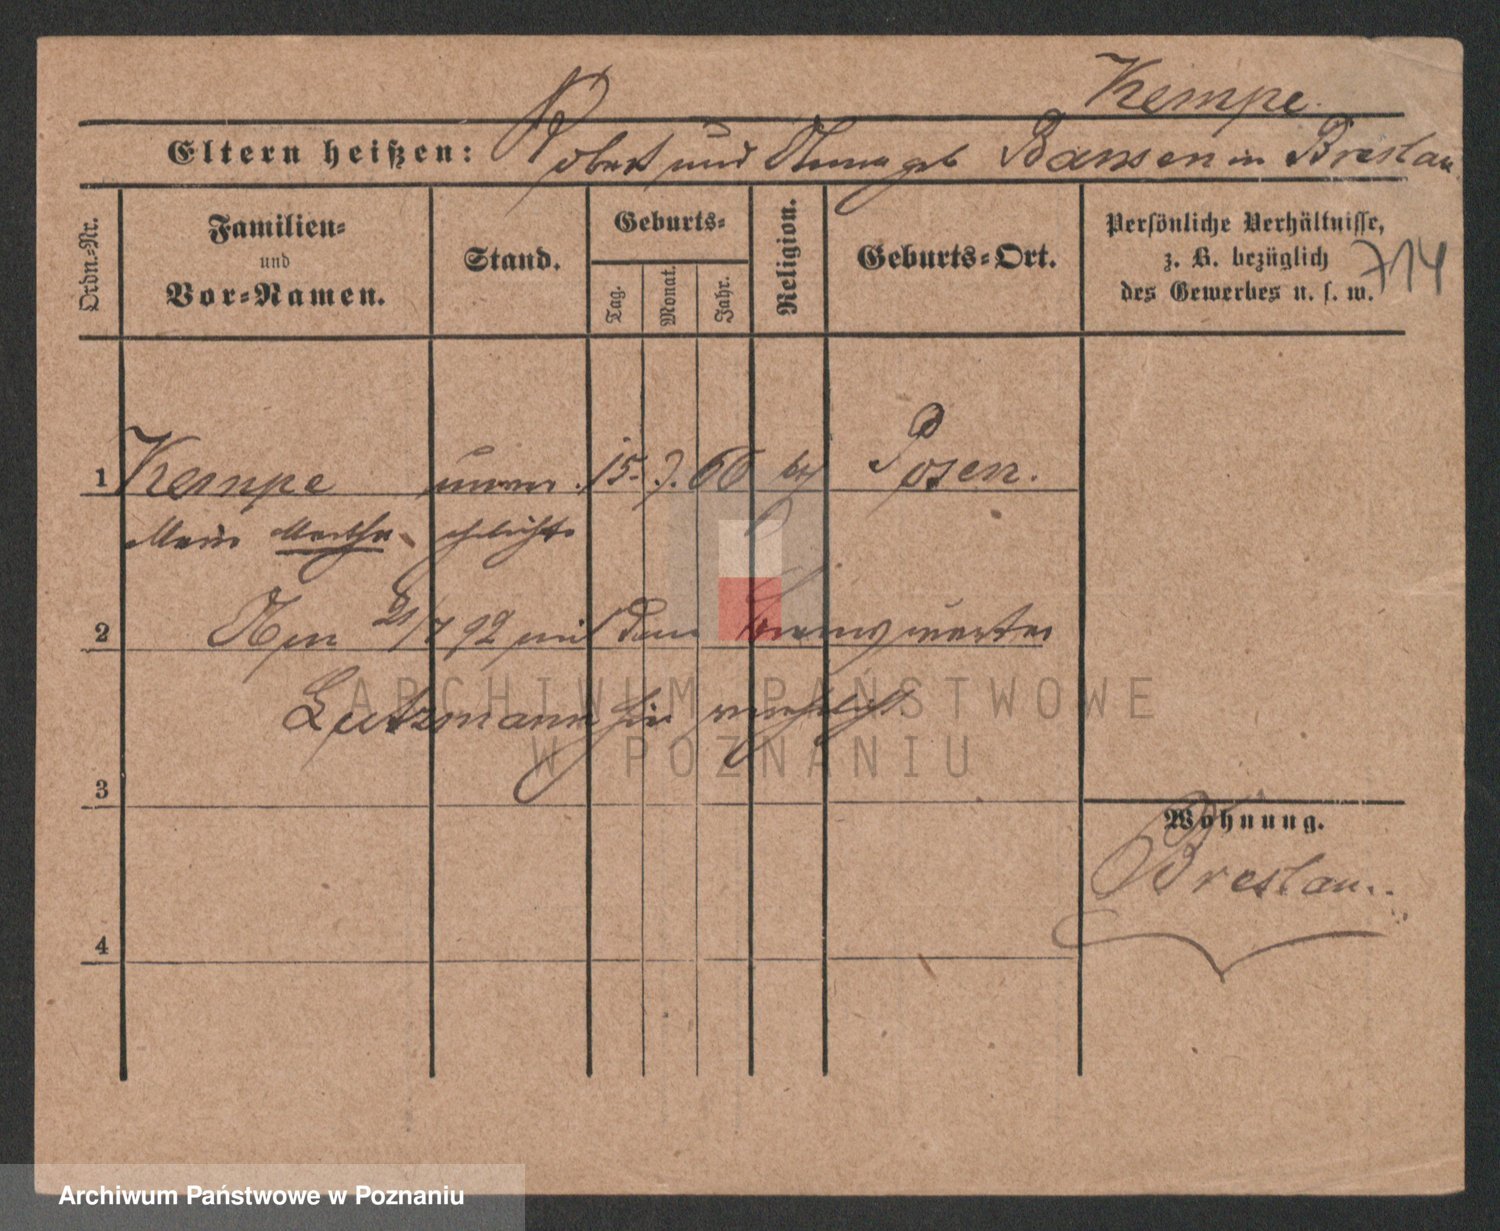 Kempe.
Eltern heißen: Robert und Anna geb Bansen in Breslau
Ordn.-Nr.
Familien-
und
Vor-Namen.
Stand.
Geburts-
Tag.
Monat.
Jahr.
Religion.
Geburts-Ort.
Persönliche Verhältnisse,
z. B. bezüglich
des Gewerbes u. s. w.
714
1 Kempe unver 15. 7. 66 Posen.
Martha ehelichte
2 92 mit dem
Lutzmann hier verehelicht.
ARCHIWUM PAŃSTWOWE
W POZNANIU
3
Wohnung.
Breslau.
4
Archiwum Państwowe w Poznaniu